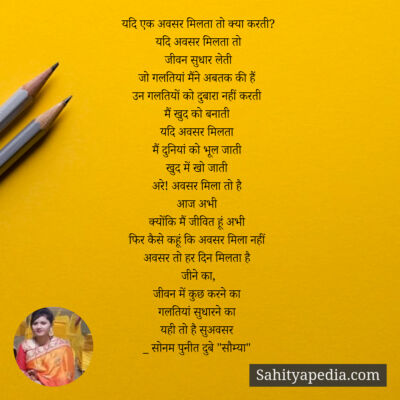 यदि एक अवसर मिलता तो क्या करती?
यदि अवसर मिलता तो
जीवन सुधार लेती
जो गलतियां मैंने अबतक की हैं
उन गलतियों को दुबारा नहीं करती
मैं खुद को बनाती
यदि अवसर मिलता
मैं दुनियां को भूल जाती
खुद में खो जाती
अरे! अवसर मिला तो है
आज अभी
क्योंकि मैं जीवित हूं अभी
फिर कैसे कहूं कि अवसर मिला नहीं
अवसर तो हर दिन मिलता है
जीने का,
जीवन में कुछ करने का
गलतियां सुधारने का
यही तो है सुअवसर
_ सोनम पुनीत दुबे "सौम्या"
Sahityapedia.com